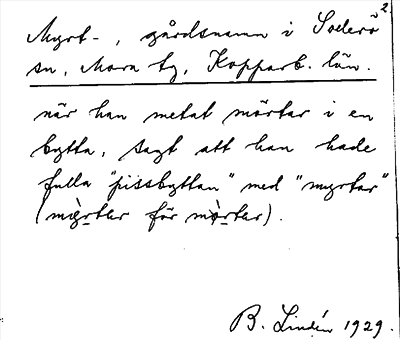 Myrt-, gårdsnamn i Sollerö 2
sn, Mora tg, Kopparb. län.
när han metat mörtar i en
bytta, sagt att han hade
fulla "pissbyttan" med "myrtar"
(my̬rter för mö̬rter).
B. Lindén 1929.